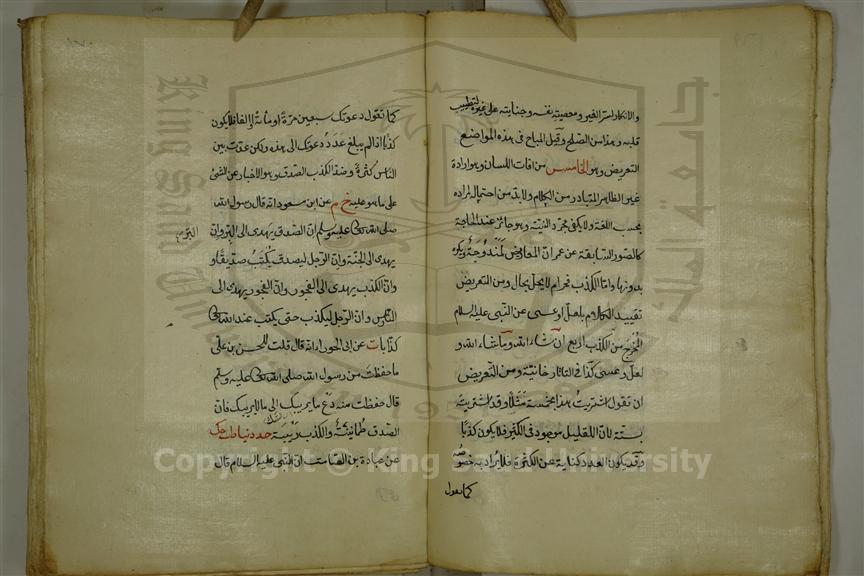 والانكار لستر الغير ومعصيته نفسه وجنايته على غيره لتطييب
قلبه وهذا من الصلح وقيل المباح فى هذه المواضع
التعريض وهو الخامس من افات اللسان وهو ارادة
غير الظاهر المتبادر من الكلام ولابد من احتماله لمراده
بحسب اللغة ولا يكفى مجرد النية وهو جائز عند الحاجة
كالصور السابقة عن عمر ان فى المعاريض لمندوحة ويكره
بدونها واما الكذب فحرام لا يحل بحال ومن التعريض
تقييد الكلام بلعل او عسى عن النبى عليه السلام
المخرج من الكذب اربع ان شاء الله وما شاء الله و
لعل وعسى كذا فى التاتارخانية ومن التعريض
ان تقول اشتريت هذا بخمسة مثلا وقد اشتريت
بستة لان القليل موجود فى الكثير فلا يكون كذبا
وقد يكون العدد كناية عن الكثرة فلا يراد به خصوصه
كما تقول
كما تقول دعوتك سبعين مرة او مائة او الفا فلا يكون
كذبا اذا لم يبلغ عدد دعوتك الى هذه ولكن عدت بين
الناس كثيرة وضد الكذب الصدق وهو الاخبار عن الشئ
على ما هو عليه خ م عن ابن مسعود انه قال رسول الله
صلى الله تعالى عليه وسلم ان الصدق يهدى الى البر وان
البر
يهدى الى الجنة وان الرجل ليصدق حتى يكتب صديقا و
وان الكذب يهدى الى الفجور وان الفجور يهدى الى
النار وان الرجل ليكذب حتى يكتب عند الله تعالى
كذابا ت عن ابى الحوراء انه قال قلت للحسن بن على
ما حفظت من رسول الله صلى الله تعالى عليه وسلم
قال حفظت منه دع ما يريبك الى ما لا يريبك فان
الصدق طمانينة والكذب ريبة حد دنيا طب حك
عن عبادة بن الصامت ان النبى عليه السلام قال
King Saud University
جامعة الملك سعود
1957
Copyright © King Saud University